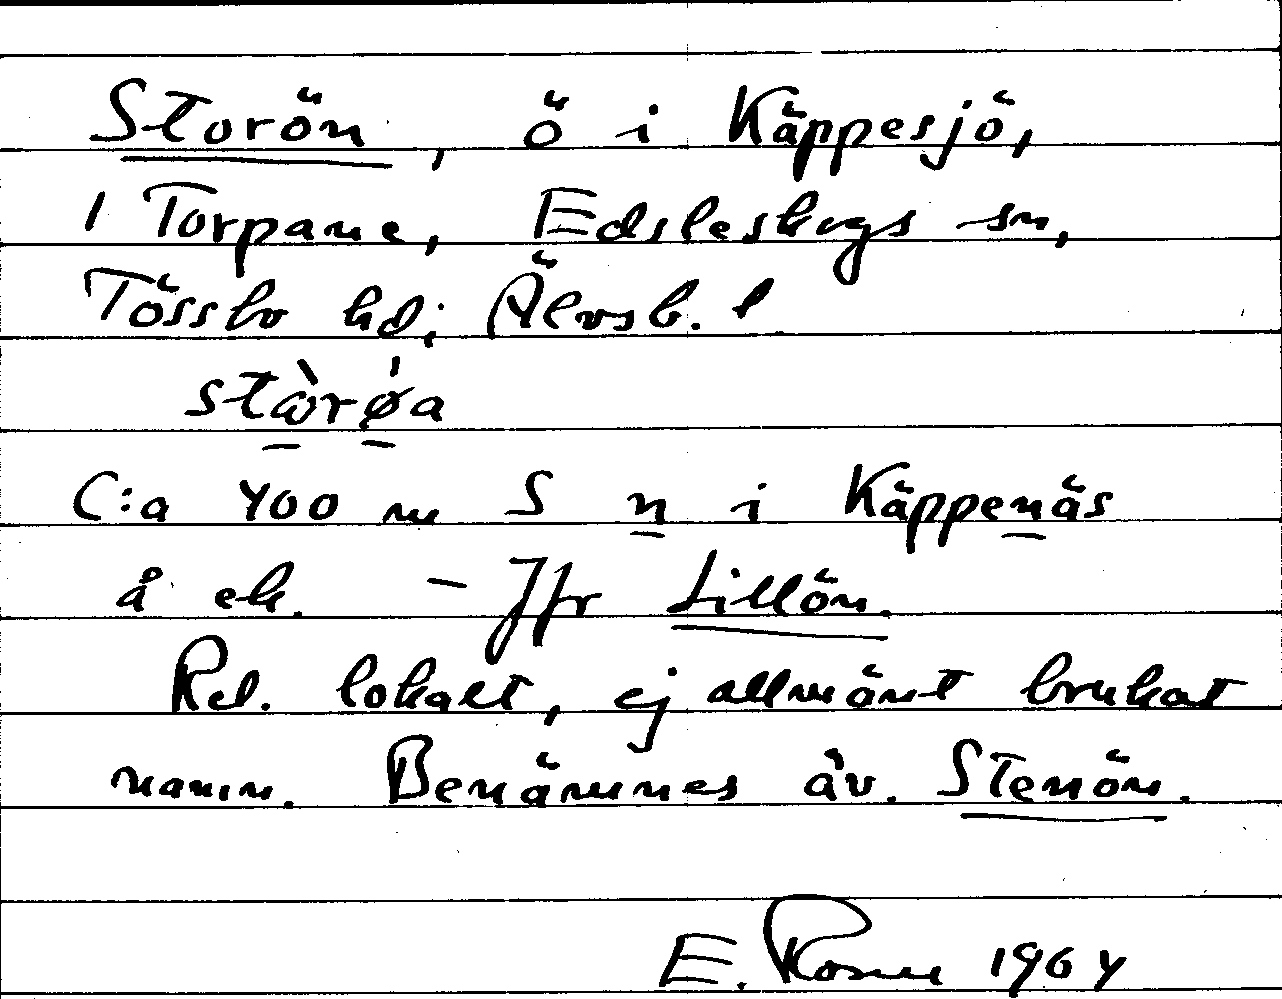 Storön, ö i Käppesjö,
1 Torpane, Edsleskogs sn,
Tössbo hd; Älvsb. l
stὼrøa
C:a 400 m S n i Käppenäs
å ek. – Jfr Lillön.
Rel. lokalt, ej allmänt brukat
namn. Benämnes äv. Stenön.
E. Rosen 1964